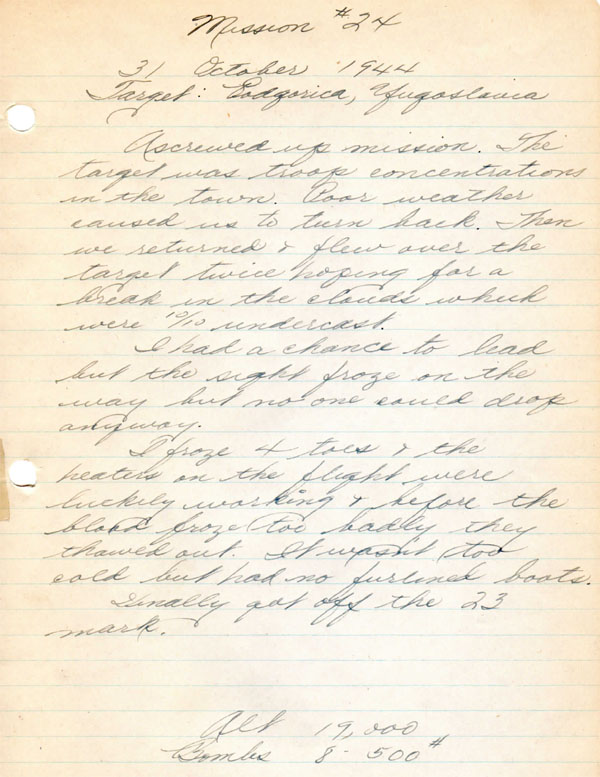 Mission #24
31 October 1944
Target: Podgorica, Yugoslavia
A screwed up mission. The
target was troop concentrations
in the town. Poor weather
caused us to turn back. Then
we returned & flew over the
target twice hoping for a
break in the clouds which
were 10/10 undercast.
I had a chance to lead
but the sight froze on the
way but no one could drop
anyway.
I froze 4 toes & the
heaters on the flight were
luckily working & before the
blood froze too badly they
thawed out. It wasn't too
cold but had no furlined boots.
Finally got off the 23
mark.
Alt 19,000
Bombs 8 - 500#